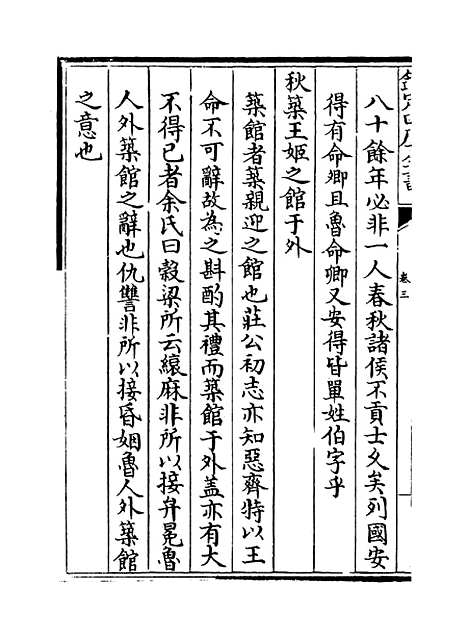 欽定四庫全書
卷三
八十餘年必非一人春秋諸侯不貢士久矣列國安
得有命卿且魯命卿又安得皆單姓伯字乎
秋築王姬之館于外
築館者築親迎之館也莊公初志亦知惡齊特以王
命不可辭故為之斟酌其禮而築館于外蓋亦有大
不得已者余氏曰穀梁所云縗麻非所以接弁冕魯
人外築館之辭也仇讐非所以接昏姻魯人外築館
之意也